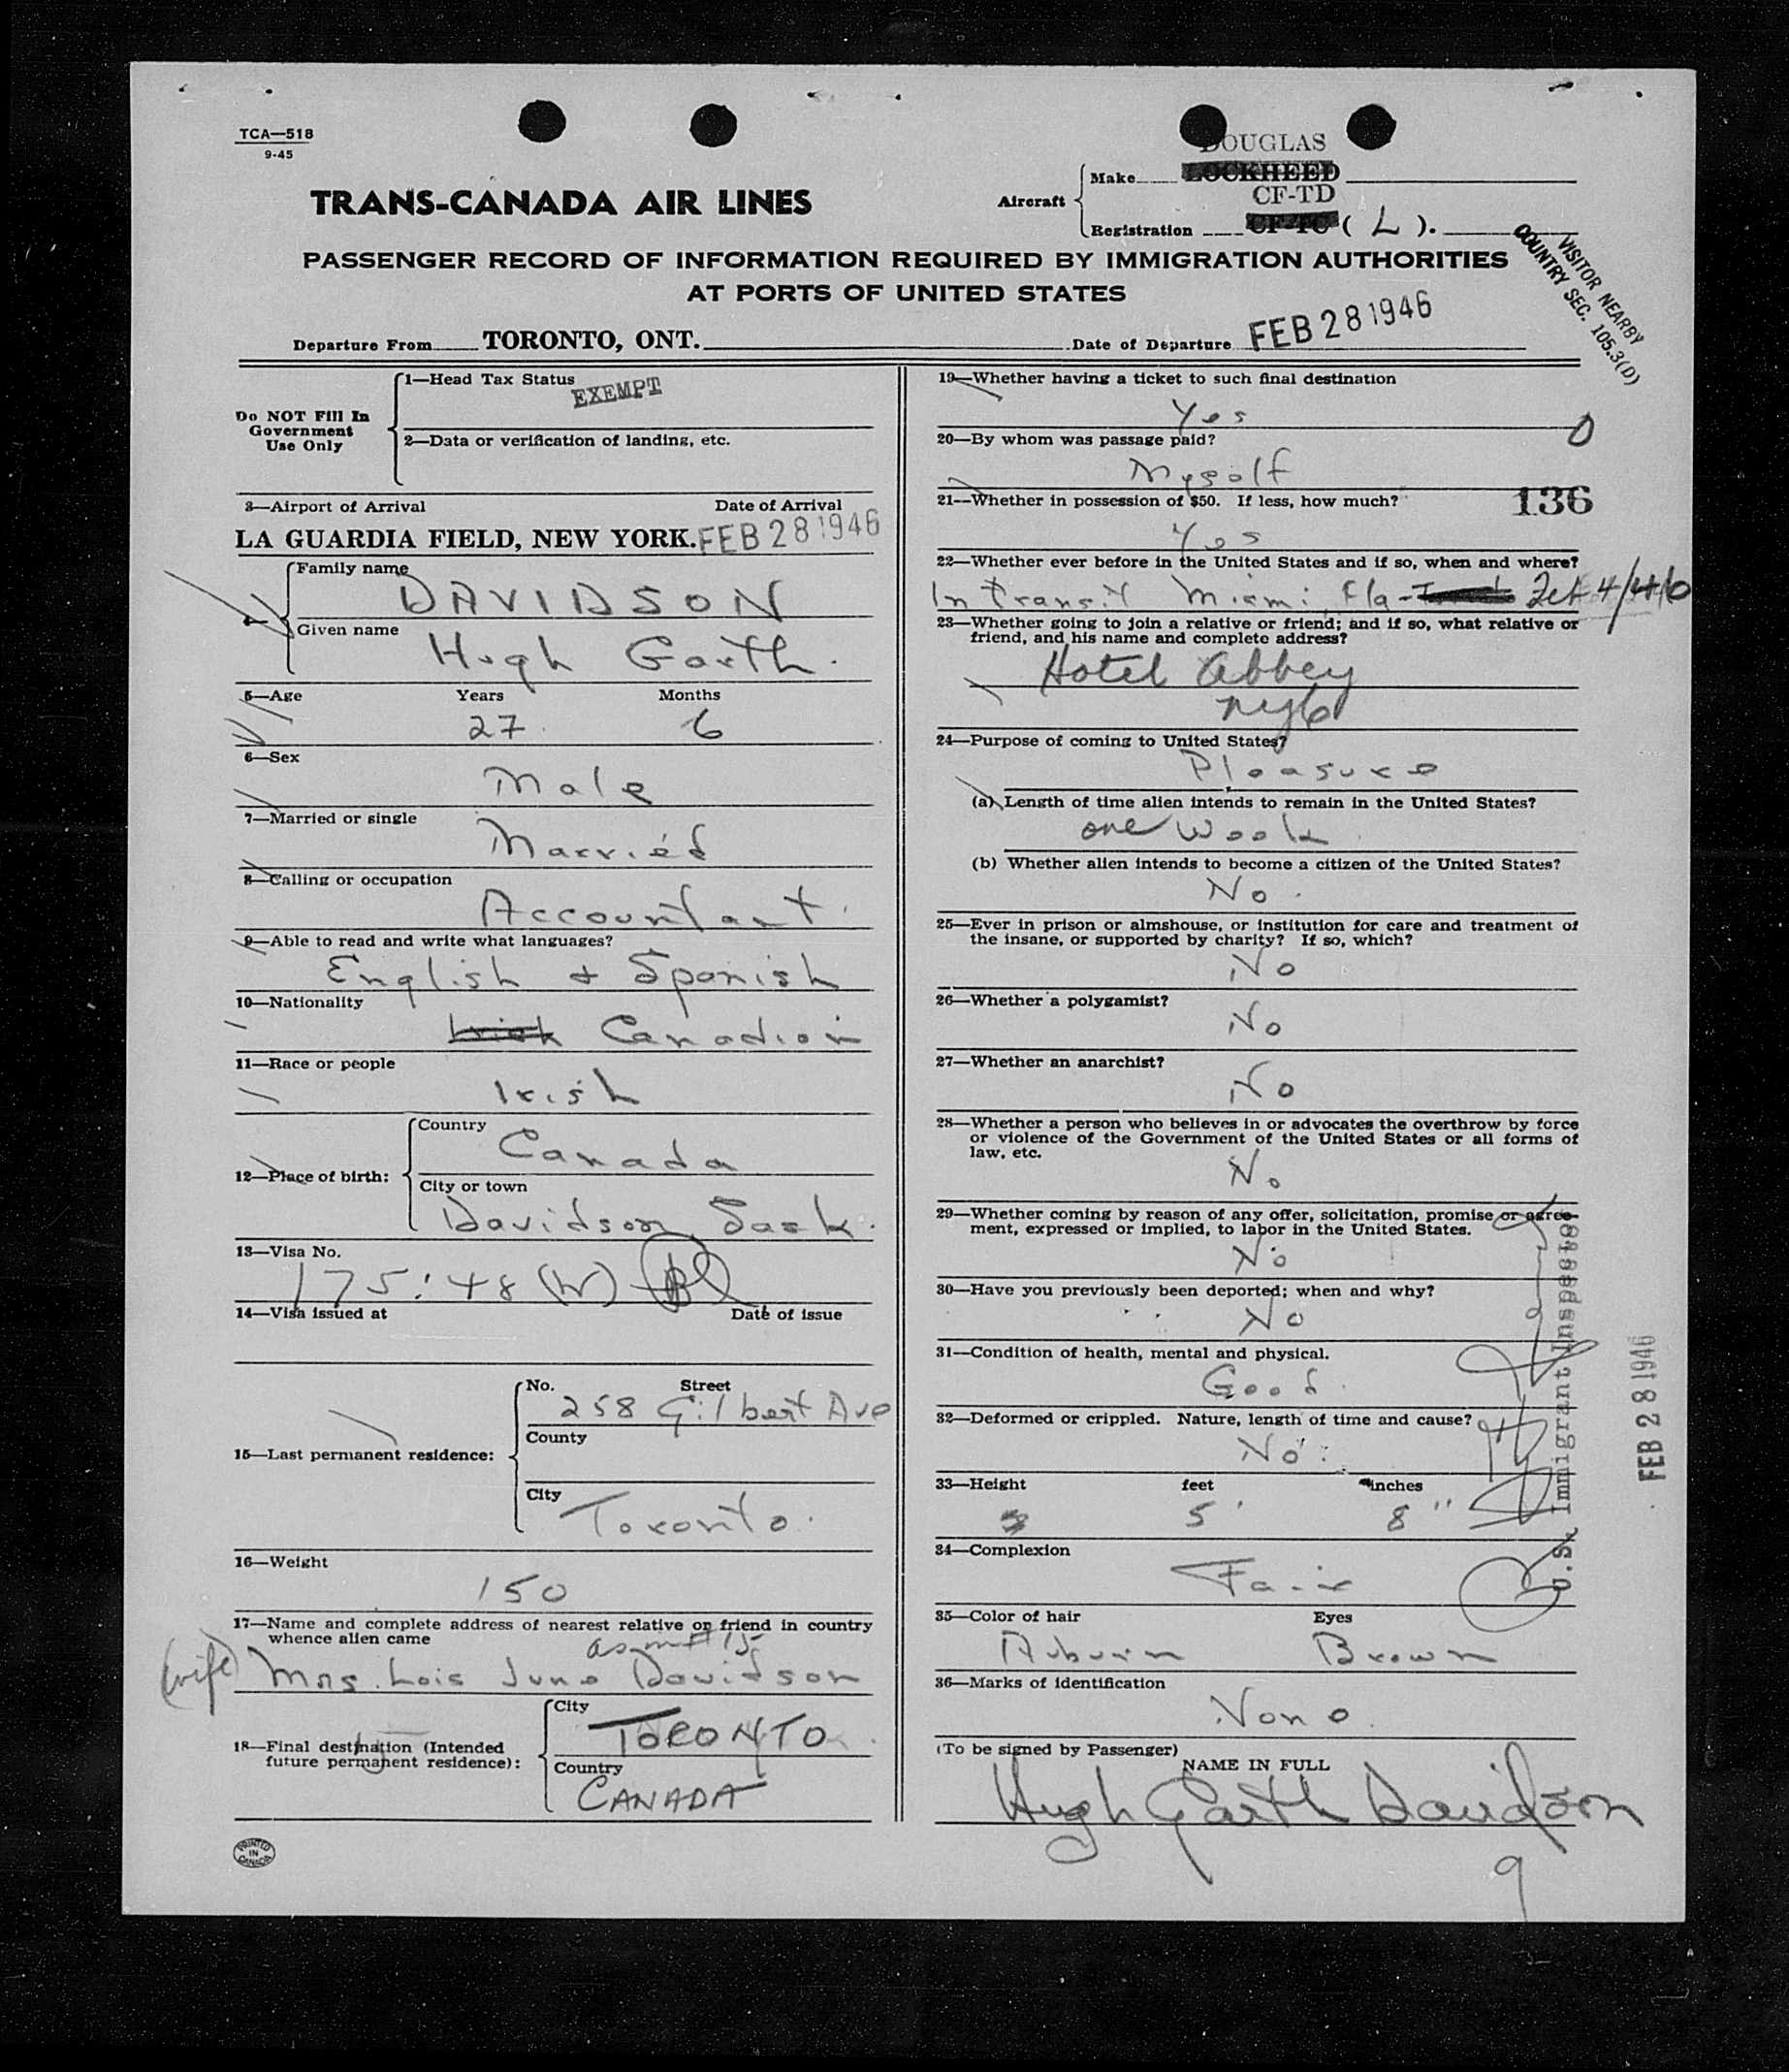 TCA—518
9-45
TRANS-CANADA AIR LINES
DOUGLAS
Aircraft
Make LOCKHEED
CF-TD
Registration CF-TC ( L ).
PASSENGER RECORD OF INFORMATION REQUIRED BY IMMIGRATION AUTHORITIES
AT PORTS OF UNITED STATES
VISITOR NEARBY
COUNTRY SEC. 105.3(D)
Departure From TORONTO, ONT. Date of Departure FEB 28 1946
Do NOT Fill In
Government
Use Only
1—Head Tax Status
EXEMPT
2—Data or verification of landing, etc.
3—Airport of Arrival Date of Arrival
LA GUARDIA FIELD, NEW YORK. FEB 28 1946
4—
Family name
DAVIDSON
Given name
Hugh Garth.
5—Age Years Months
27 6
6—Sex
Male
7—Married or single
Married
8—Calling or occupation
Accountant.
9—Able to read and write what languages?
English + Spanish
10—Nationality
Irish Canadian
11—Race or people
Irish
12—Place of birth:
Country
Canada
City or town
Davidson Sask.
13—Visa No.
175:48 (W)
14—Visa issued at Date of issue
15—Last permanent residence:
No. Street
258 Gilbert Ave
County
City
Toronto.
16—Weight
150
17—Name and complete address of nearest relative or friend in country
whence alien came
as in # 15
(wife) Mrs. Lois June Davidson
18—Final destination (Intended
future permanent residence):
City
TORONTO
Country
CANADA
PRINTED
IN
CANADA
19—Whether having a ticket to such final destination
Yes
0
20—By whom was passage paid?
Myself
21—Whether in possession of $50. If less, how much?
136
Yes
22—Whether ever before in the United States and if so, when and where?
In transit Miami Fla - Feb 4/46
23—Whether going to join a relative or friend; and if so, what relative or
friend, and his name and complete address?
Hotel Abbey
nyc
24—Purpose of coming to United States?
Pleasure
(a) Length of time alien intends to remain in the United States?
one Week
(b) Whether alien intends to become a citizen of the United States?
No.
25—Ever in prison or almshouse, or institution for care and treatment of
the insane, or supported by charity? If so, which?
No
26—Whether a polygamist?
No
27—Whether an anarchist?
No
28—Whether a person who believes in or advocates the overthrow by force
or violence of the Government of the United States or all forms of
law, etc.
No
29—Whether coming by reason of any offer, solicitation, promise or agree-
ment, expressed or implied, to labor in the United States.
No
30—Have you previously been deported; when and why?
No
31—Condition of health, mental and physical.
Good.
32—Deformed or crippled. Nature, length of time and cause?
No.
33—Height feet inches
5' 8"
34—Complexion
Fair
35—Color of hair Eyes
Auburn Brown
36—Marks of identification
None.
U.S. Immigrant Inspector
FEB 28 1946
(To be signed by Passenger)
NAME IN FULL
Hugh Garth Davidson
9